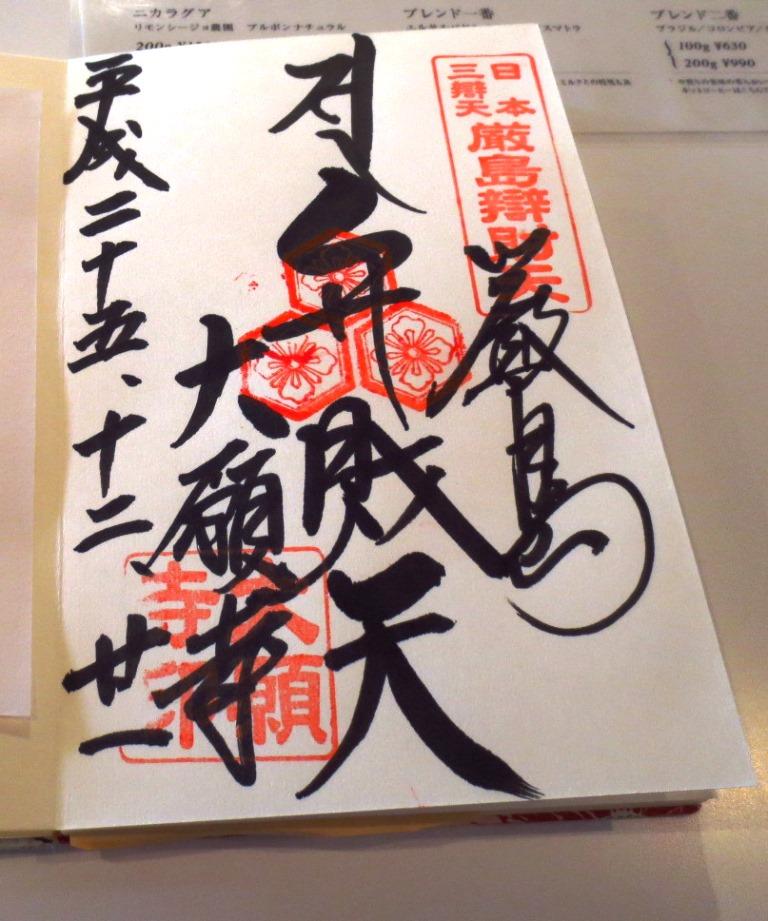 ニカラグア
リモンシージョ農園 ブルボンナチュラル
200g
ブレンド一番
スマトラ
ブレンド二番
ブラジル/コロンビア/
100g ¥630
200g ¥990
日本
三辯天
厳島辯財天
厳島
弁財天
大願寺
大願
寺印
平成二十五、十二 廿一